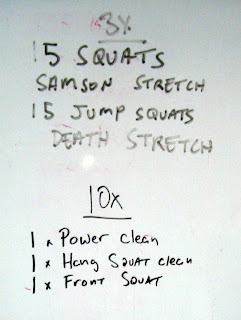 3x
15 SQUATS
SAMSON STRETCH
15 JUMP SQUATS
DEATH STRETCH
10x
1 x Power Clean
1 x Hang SQUAT clean
1 x Front SQUAT